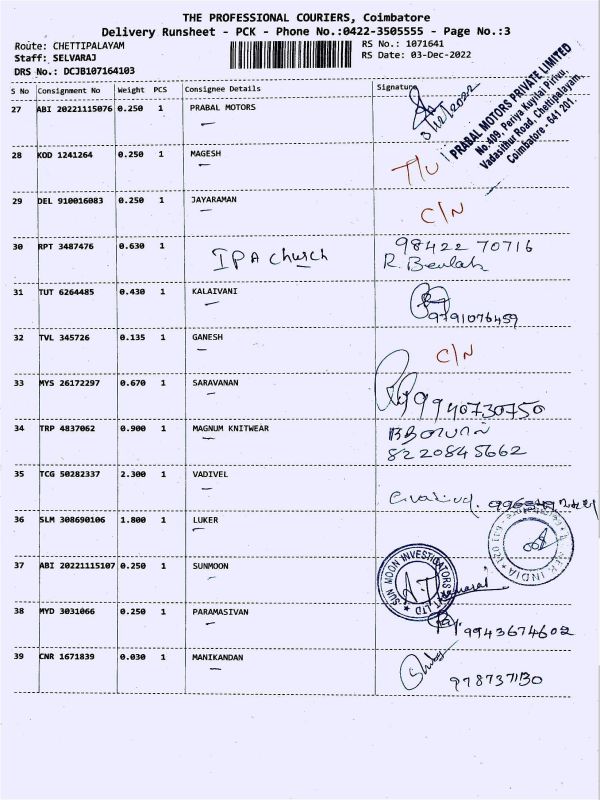 THE PROFESSIONAL COURIERS, Coimbatore
Delivery Runsheet - PCK - Phone No.:0422-3505555 - Page No.:3
Route: CHETTIPALAYAM
RS No.: 1071641
Staff: SELVARAJ
RS Date: 03-Dec-2022
DRS No.: DCJB107164103
S No Consignment No Weight PCS Consignee Details Signature
27 ABI 20221115076 0.250 1 PRABAL MOTORS
3/12/2022
PRABAL MOTORS PRIVATE LIMITED
No.409, Periya Kuyilai Pirivu,
Vadasithur Road, Chettipalayam,
Coimbatore - 641 201.
28 KOD 1241264 0.250 1 MAGESH T/U
29 DEL 910016083 0.250 1 JAYARAMAN C/N
30 RPT 3487476 0.630 1 IPA Church 98422 70716
R. Beulah
31 TUT 6264485 0.430 1 KALAIVANI
9791076459
32 TVL 345726 0.135 1 GANESH C/N
33 MYS 26172297 0.670 1 SARAVANAN
9940730750
34 TRP 4837062 0.900 1 MAGNUM KNITWEAR
8220845662
35 TCG 50282337 2.300 1 VADIVEL
36 SLM 308690106 1.800 1 LUKER
INDIA
37 ABI 20221115107 0.250 1 SUNMOON
SUN MOON INVESTIGATORS PVT LTD
38 MYD 3031066 0.250 1 PARAMASIVAN
9943674602
39 CNR 1671839 0.030 1 MANIKANDAN